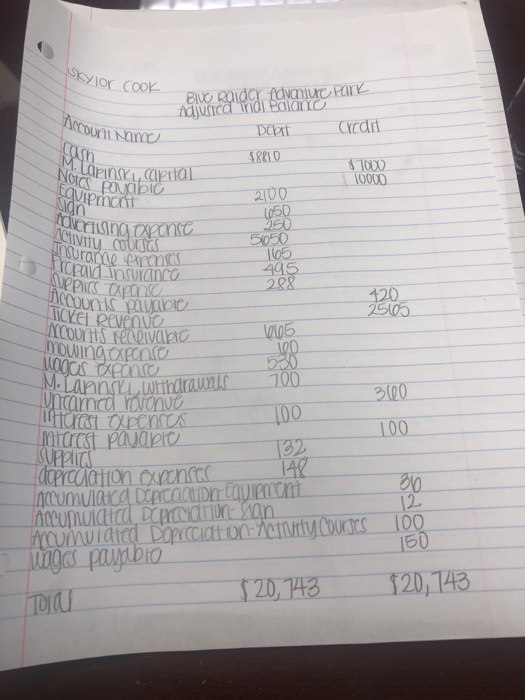 Skylor Cook
Blue Raider Adventure Park
Adjusted Trial Balance
Account Name Debit Credit
Cash $8810
M. Lapinski, capital $7000
Notes payable 10000
Equipment 2100
Sign 650
Advertising expense 250
Activity courses 5650
Insurance expenses 165
Prepaid insurance 495
Supplies expense 288
Accounts payable 420
Ticket Revenue 2565
Accounts receivable 665
mowing expense 60
wages expense 530
M. Lapinski, withdrawals 700
Unearned revenue 360
Interest expenses 100
Interest payable 100
Supplies 132
depreciation expenses 148
Accumulated Depreciation-Equipment 36
Accumulated Depreciation-Sign 12
Accumulated Depreciation-Activity Courses 100
Wages payable 150
Total $20,743 $20,743